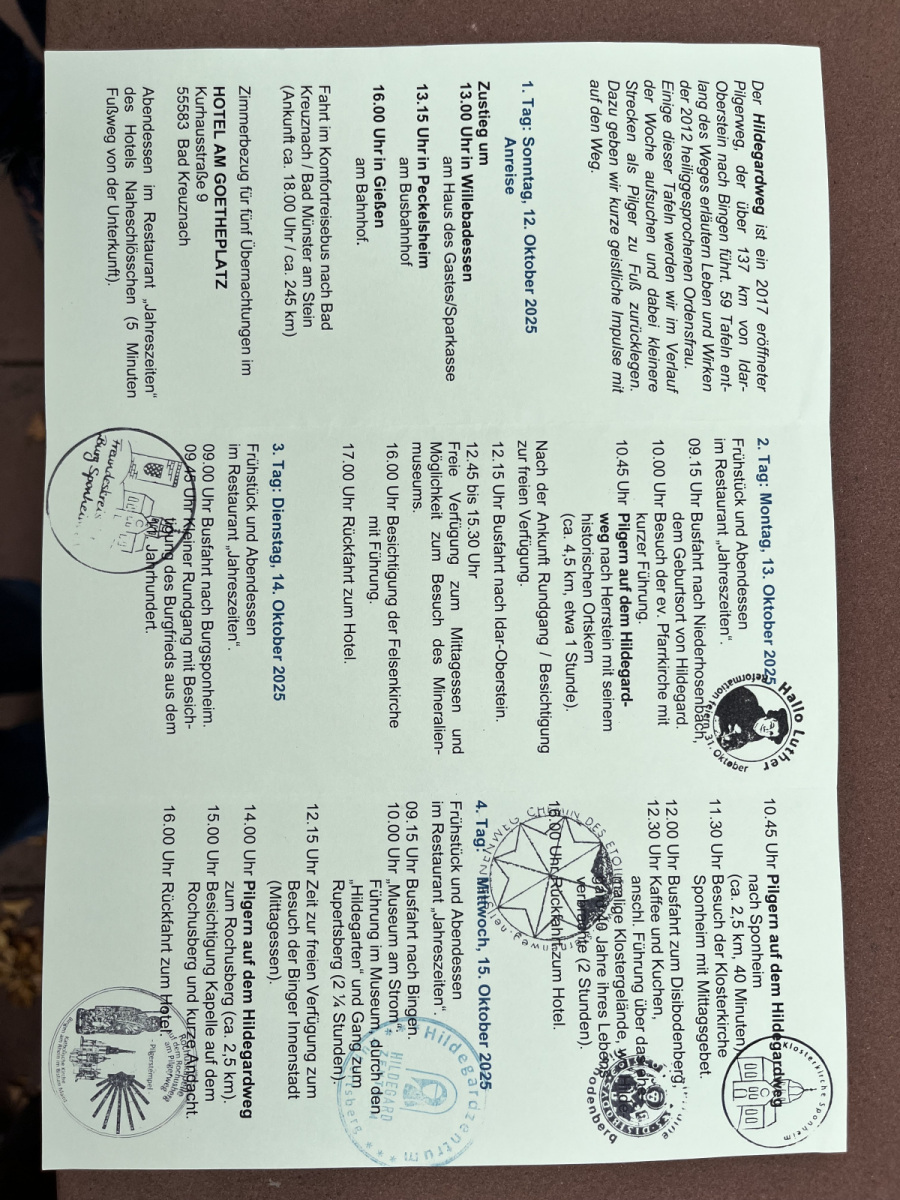 Der Hildegardweg ist ein 2017 eröffneter
Pilgerweg, der über 137 km von Idar-
Oberstein nach Bingen führt. 59 Tafeln ent-
lang des Weges erläutern Leben und Wirken
der 2012 heiliggesprochenen Ordensfrau.
Einige dieser Tafeln werden wir im Verlauf
der Woche aufsuchen und dabei kleinere
Strecken als Pilger zu Fuß zurücklegen.
Dazu geben wir kurze geistliche Impulse mit
auf den Weg.
1. Tag: Sonntag, 12. Oktober 2025
Anreise
Zustieg um
13.00 Uhr in Willebadessen
am Haus des Gastes/Sparkasse
13.15 Uhr in Peckelsheim
am Busbahnhof
16.00 Uhr in Gießen
am Bahnhof.
Fahrt im Komfortreisebus nach Bad
Kreuznach / Bad Münster am Stein
(Ankunft ca. 18.00 Uhr / ca. 245 km)
Zimmerbezug für fünf Übernachtungen im
HOTEL AM GOETHEPLATZ
Kurhausstraße 9
55583 Bad Kreuznach
Abendessen im Restaurant „Jahreszeiten“
des Hotels Naheschlösschen (5 Minuten
Fußweg von der Unterkunft).
2. Tag: Montag, 13. Oktober 2025
Frühstück und Abendessen
im Restaurant „Jahreszeiten“.
09.15 Uhr Busfahrt nach Niederhosenbach,
dem Geburtsort von Hildegard.
10.00 Uhr Besuch der ev. Pfarrkirche mit
kurzer Führung.
10.45 Uhr Pilgern auf dem Hildegard-
weg nach Herrstein mit seinem
historischen Ortskern
(ca. 4,5 km, etwa 1 Stunde).
Nach der Ankunft Rundgang / Besichtigung
zur freien Verfügung.
12.15 Uhr Busfahrt nach Idar-Oberstein.
12.45 bis 15.30 Uhr
Freie Verfügung zum Mittagessen und
Möglichkeit zum Besuch des Mineralien-
museums.
16.00 Uhr Besichtigung der Felsenkirche
mit Führung.
17.00 Uhr Rückfahrt zum Hotel.
3. Tag: Dienstag, 14. Oktober 2025
Frühstück und Abendessen
im Restaurant „Jahreszeiten“.
09.00 Uhr Busfahrt nach Burgsponheim.
09.45 Uhr Kleiner Rundgang mit Besich-
tigung des Burgfrieds aus dem
Jahrhundert.
Freundeskreis
Burg Sponheim
Hallo Luther
Reformation feiern 31. Oktober
10.45 Uhr Pilgern auf dem Hildegardweg
nach Sponheim
(ca. 2,5 km, 40 Minuten)
11.30 Uhr Besuch der Klosterkirche
Sponheim mit Mittagsgebet.
12.00 Uhr Busfahrt zum Disibodenberg,
12.30 Uhr Kaffee und Kuchen,
anschl. Führung über das ehe-
malige Klostergelände, wo Hilde-
gard 40 Jahre ihres Lebens
verbrachte (2 Stunden).
16.00 Uhr Rückfahrt zum Hotel.
Klosterkirche Sponheim
CHEMIN DES ETOILES
4. Tag: Mittwoch, 15. Oktober 2025
Frühstück und Abendessen
im Restaurant „Jahreszeiten“.
09.15 Uhr Busfahrt nach Bingen.
10.00 Uhr „Museum am Strom“
Führung im Museum, durch den
„Hildegarten“ und Gang zum
Rupertsberg (2 ¼ Stunden).
12.15 Uhr Zeit zur freien Verfügung zum
Besuch der Binger Innenstadt
(Mittagessen).
14.00 Uhr Pilgern auf dem Hildegardweg
zum Rochusberg (ca. 2,5 km).
15.00 Uhr Besichtigung Kapelle auf dem
Rochusberg und kurze Andacht.
16.00 Uhr Rückfahrt zum Hotel.
Hildegardzentrum
HILDEGARD
Pilgerstempel